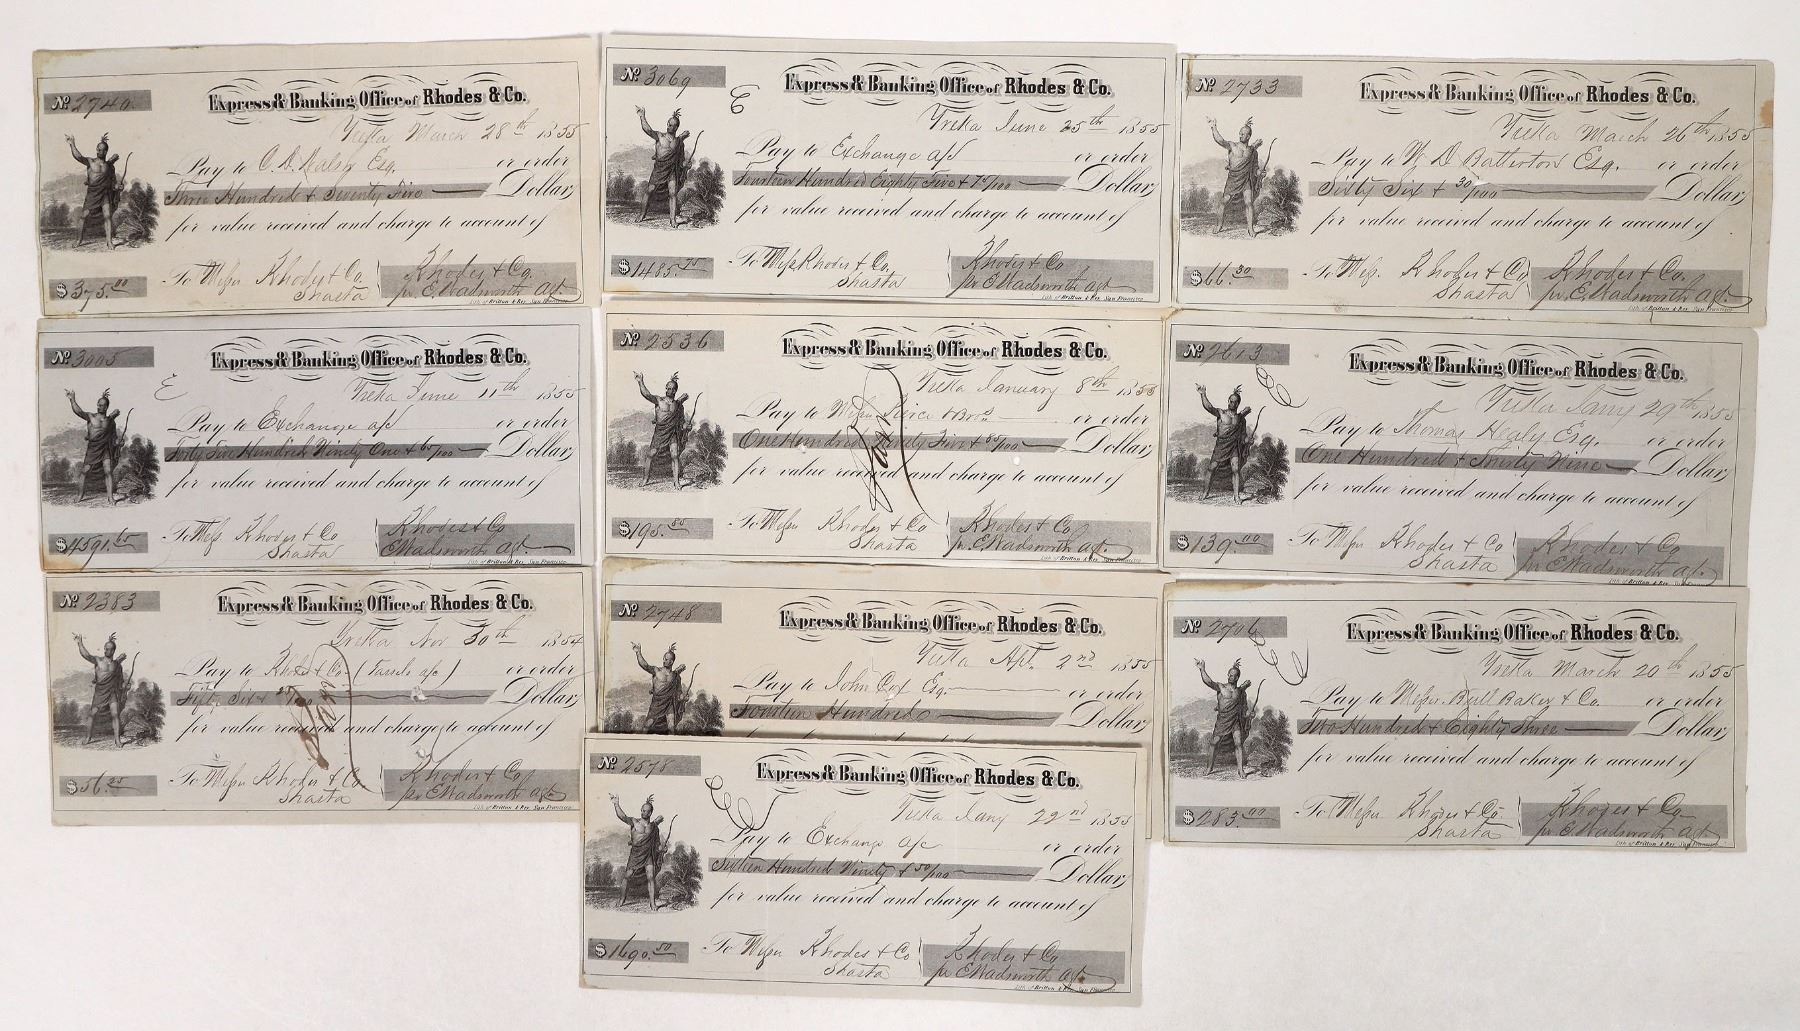 No 2740.
Express & Banking Office of Rhodes & Co.
Yreka March 28th 1855
Pay to C. D. Walsh Esq. or order
Three Hundred & Seventy Five Dollars,
for value received and charge to account of
$375.00 To Messrs Rhodes & Co. Rhodes & Co.
Shasta pr E. Wadsworth agt.
Lith. of Britton & Rey San Francisco
No 3069
Express & Banking Office of Rhodes & Co.
E
Yreka June 25th 1855
Pay to Exchange a/c or order
Fourteen Hundred Eighty Five & 75/100 Dollars,
for value received and charge to account of
$1485.75 To Mess Rhodes & Co. Rhodes & Co
Shasta pr E. Wadsworth agt.
Lith. of Britton & Rey San Francisco
No 2733
Express & Banking Office of Rhodes & Co.
Yreka March 26th 1855
Pay to W D Batterton Esq. or order
Sixty Six & 30/100 Dollars,
for value received and charge to account of
$66.30 To Mess. Rhodes & Co Rhodes & Co.
Shasta pr E. Wadsworth agt.
Lith. of Britton & Rey San Francisco
No 3005
Express & Banking Office of Rhodes & Co.
E
Yreka June 11th 1855
Pay to Exchange a/c or order
Forty Five Hundred Ninety One & 65/100 Dollars,
for value received and charge to account of
$4591.65 To Mess. Rhodes & Co Rhodes & Co
Shasta E Wadsworth agt.
Lith. of Britton & Rey San Francisco
No 2536
Express & Banking Office of Rhodes & Co.
Yreka January 8th 1855
Pay to Messrs Pierce & Bros. or order
One Hundred Ninety Five & 80/100 Dollars,
for value received and charge to account of
$195.80 To Messrs Rhodes & Co Rhodes & Co
Shasta pr E Wadsworth agt.
Lith. of Britton & Rey San Francisco
No 2613
Express & Banking Office of Rhodes & Co.
Yreka Jany 29th 1855
Pay to Thomas Healy Esq. or order
One Hundred & Thirty Nine Dollars,
for value received and charge to account of
$139.00 To Messrs Rhodes & Co Rhodes & Co
Shasta pr E Wadsworth agt.
Lith. of Britton & Rey San Francisco
No 2383
Express & Banking Office of Rhodes & Co.
Yreka Nov 30th 1854
Pay to Rhodes & Co. a/c) or order
Fifty Six & Dollars,
for value received and charge to account of
$56.25 To Messrs Rhodes & Co Rhodes & Co
Shasta pr E Wadsworth agt
Lith. of Britton & Rey San Francisco
No 2748
Express & Banking Office of Rhodes & Co.
Yreka Apl. 2nd 1855
Pay to John Cox Esq. or order
Fourteen Hundred Dollars,
No 2706
Express & Banking Office of Rhodes & Co.
Yreka March 20th 1855
Pay to Messrs. Bull Baker & Co. or order
Two Hundred & Eighty Three Dollars,
for value received and charge to account of
$283.00 To Messrs Rhodes & Co. Rhodes & Co
Shasta pr E Wadsworth agt
Lith. of Britton & Rey San Francisco
No 2578
Express & Banking Office of Rhodes & Co.
Yreka Jany 22nd 1855
Pay to Exchange a/c or order
Sixteen Hundred Ninety & 50/100 Dollars,
for value received and charge to account of
$1690.50 To Messrs Rhodes & Co Rhodes & Co
Shasta pr E Wadsworth agt.
Lith. of Britton & Rey San Francisco